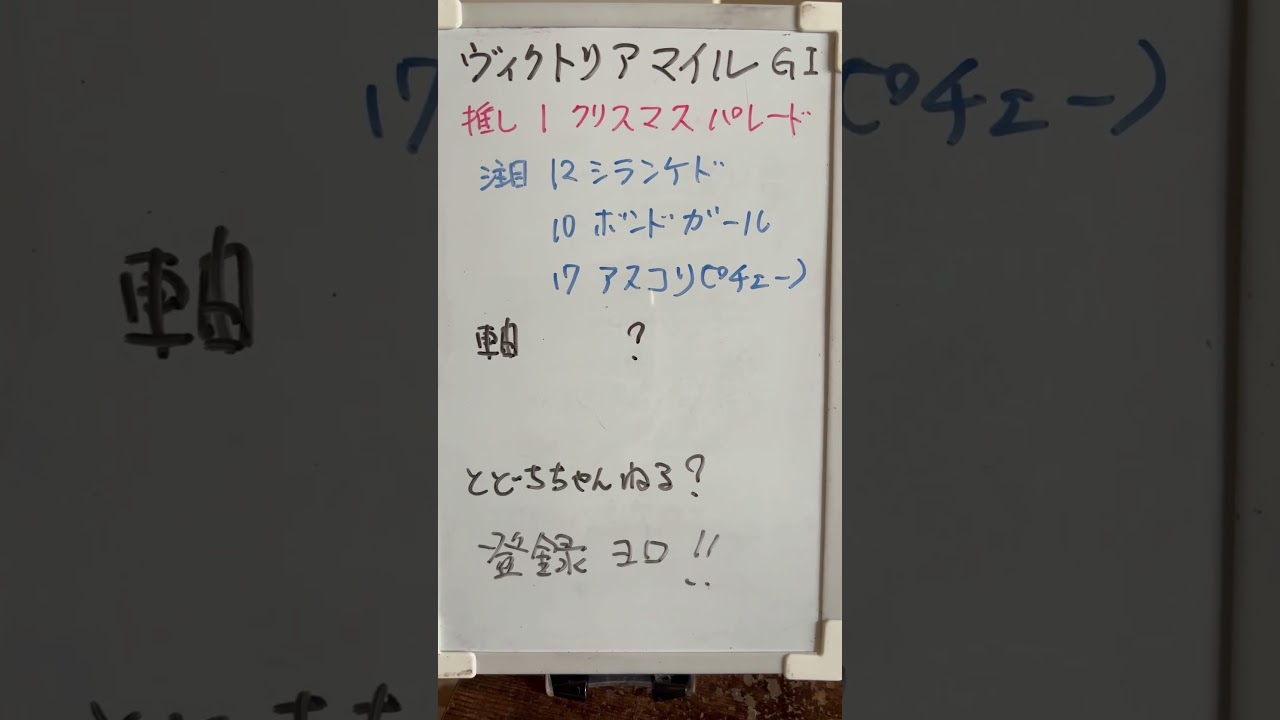 ヴィクトリアマイル GI
推し 1 クリスマスパレード
注目 12 シランケド
10 ボンドガール
17 アスコリ(ピチェー)
軸 ?
ととーちちゃんねる?
登録 ヨロ!!